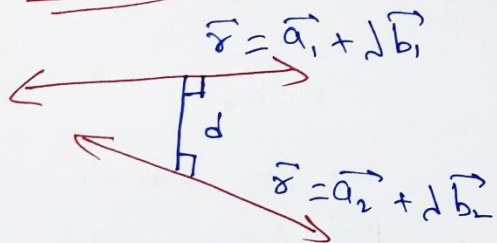 r⃗ = a⃗₁ + λb⃗₁
d
r⃗ = a⃗₂ + λb⃗₂